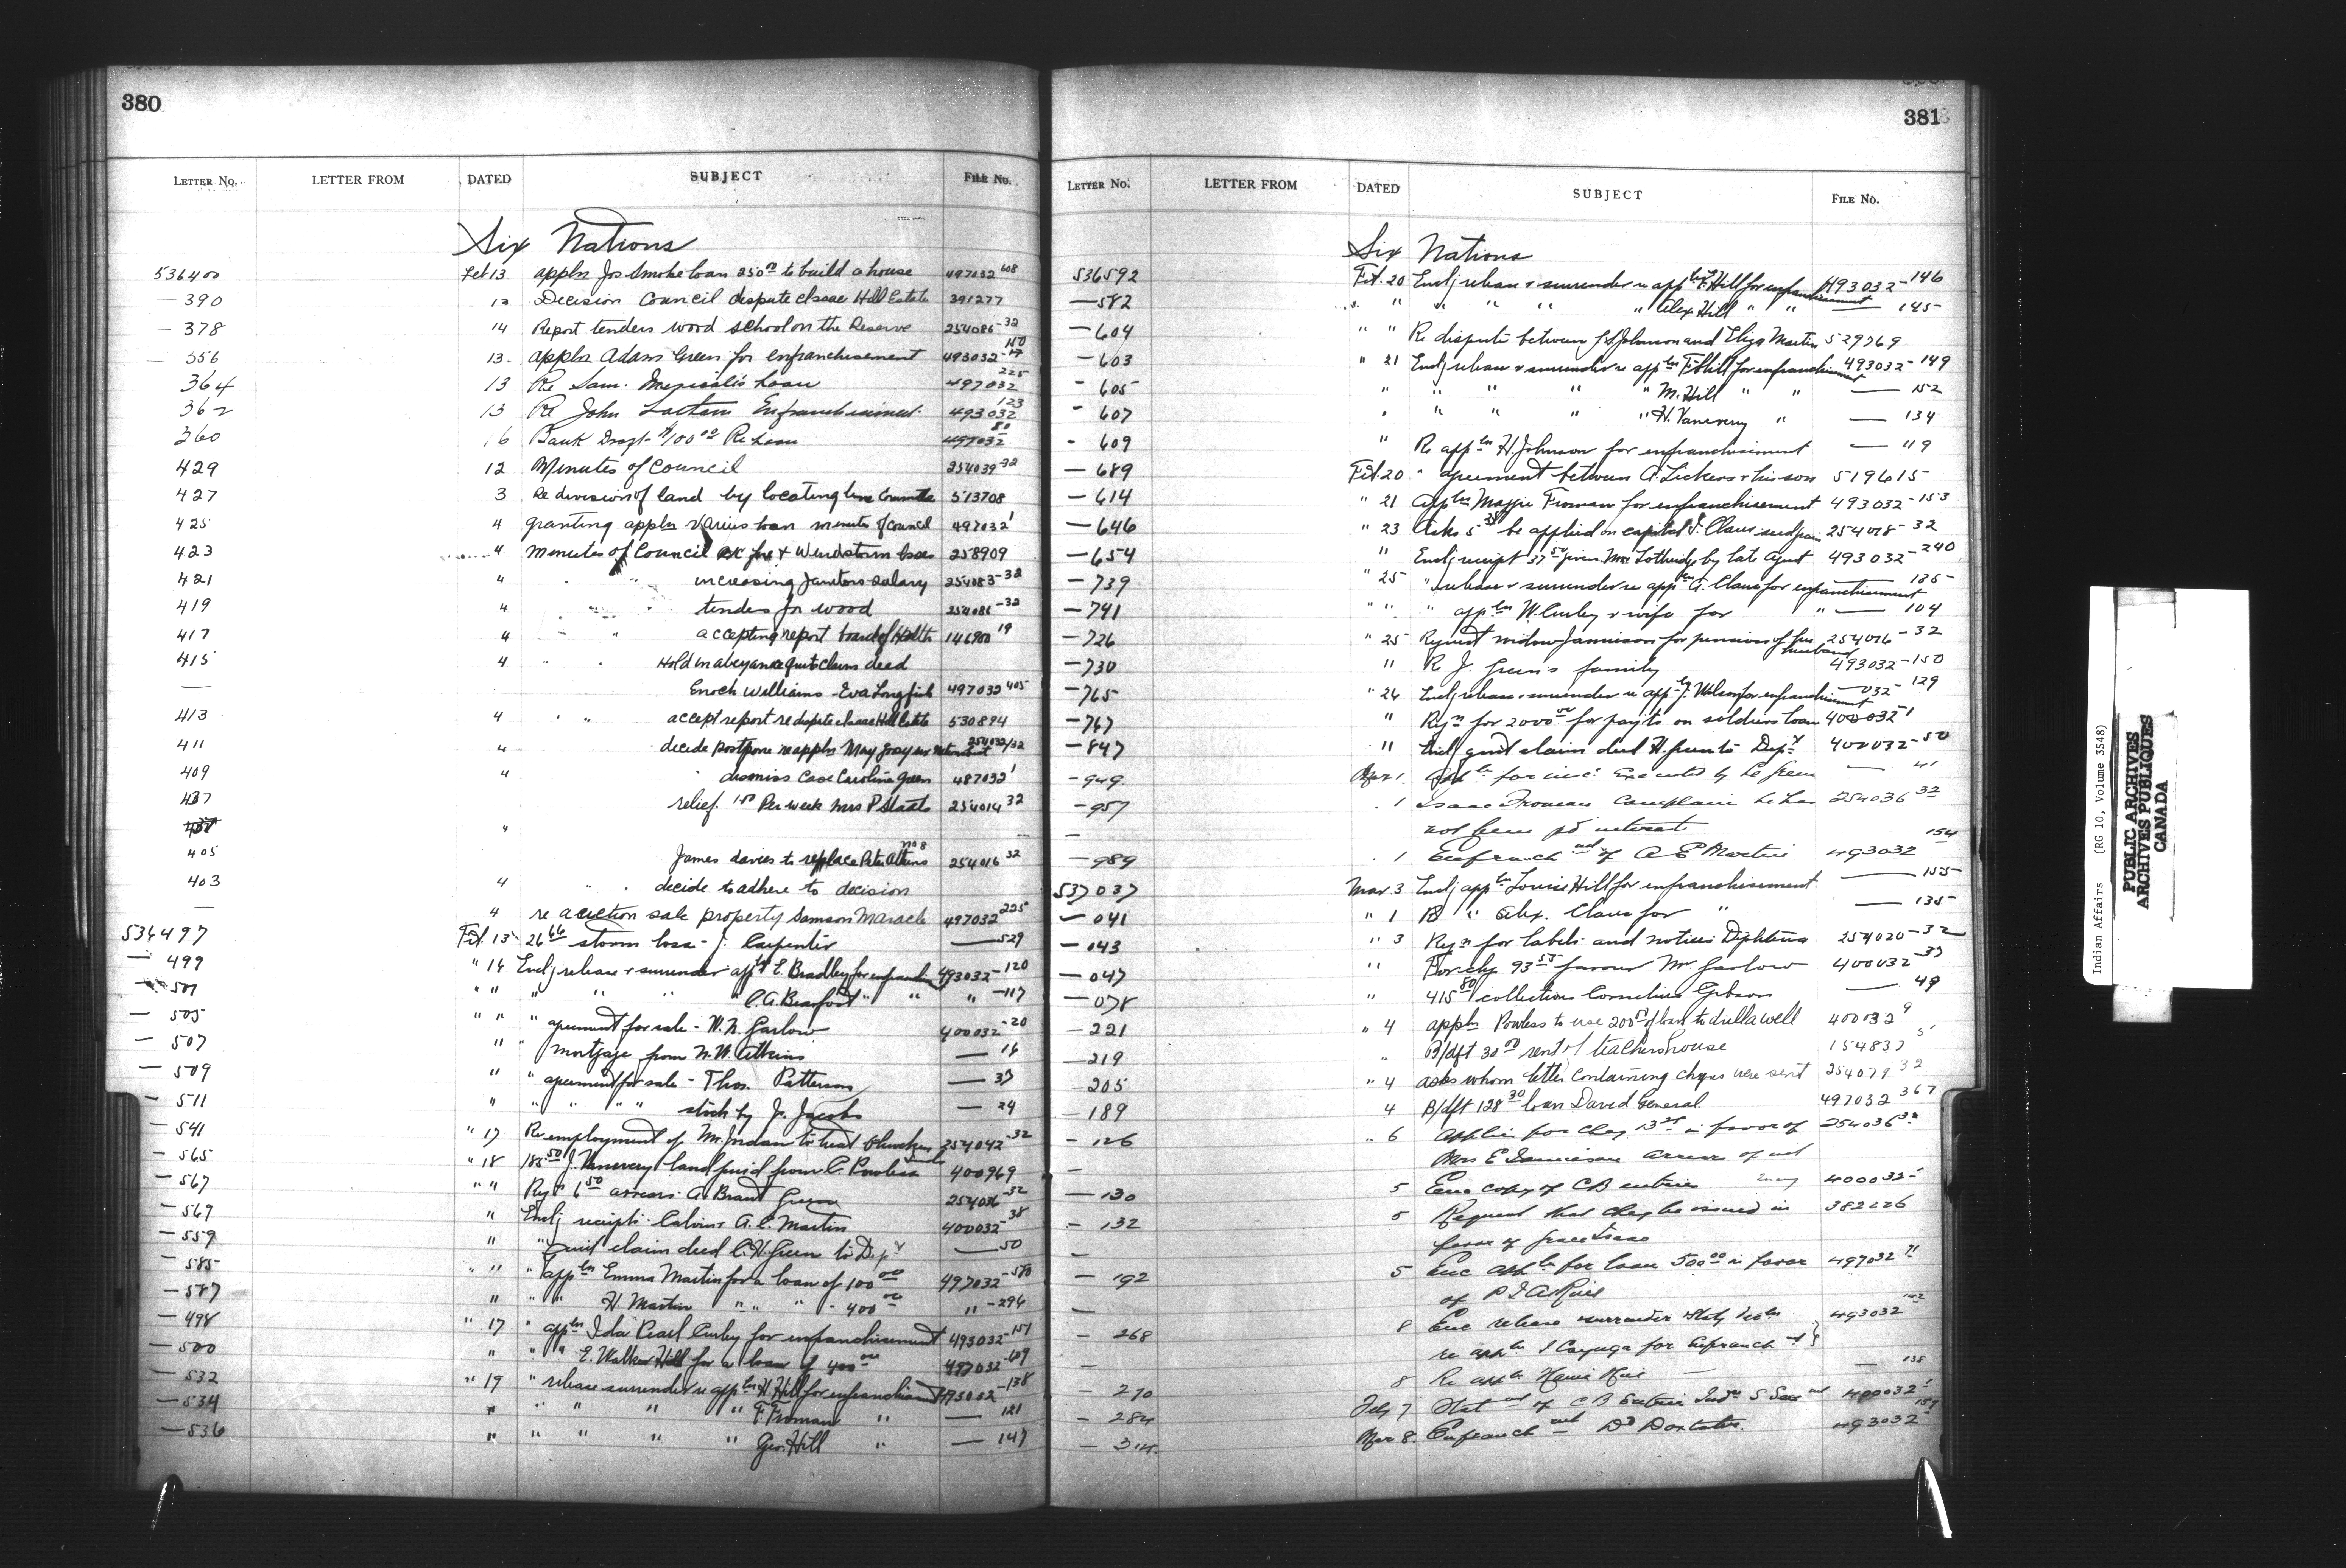 380
LETTER No. LETTER FROM DATED SUBJECT FILE No.
Six Nations
536400 Feb 13 appln Jos Smoke loan 250 00 to build a house 497032 608
— 390 12 Decision Council dispute Isaac Hill Estate 391277
— 378 14 Report tenders wood school on the Reserve 254086-32
— 356 13 appln Adam Green for enfranchisement 493032-
364 13 Re Sam. loan 497032 225
362 13 Re John 493032 123
360 16 Bank Draft $100 00 Re loan 497032 80
429 12 Minutes of Council 254039-32
427 3 Re division of land by locating line 513708
425 4 granting applns various loan minutes of council 497032 1
423 4 minutes of Council fire & Windstorm losses 258909
421 " " " increasing Janitors salary 254083-32
419 4 tenders for wood 254086-32
417 4 " accepting report board of Health 146900 19
415 4 " " Hold in abeyance quit claim deed
— Enoch Williams - Eva Longfish 497032 405
413 4 " " accept report re dispute Isaac Hill Estate 530894
411 4 decide postpone re appln May 254032/32
409 " dismiss Case Caroline Green 487032 1
437 relief 1 50 Per week Mrs P Staats 254014 32
"
405 James davies to replace Peter Atkins no 8 254016 32
403 4 " " decide to adhere to decision
— 4 re auction sale property Samson Maracle 497032 225
536497 Feb. 13 26 66 storm loss - J. Carpenter — 529
— 499 " 14 Encl release & surrender appln E. Bradley for enfranch 493032-120
— 501 " " " " " " C. A. Beaufort " " " -117
— 505 " " " agreement for sale - W. N. Garlow 400032-20
— 507 " " mortgage from N. W. Atkins — 16
— 509 " " agreement for sale - Thos. Patterson — 37
— 511 " " " " " stock by J. Jacobs — 24
— 541 " 17 Re employment of Mr. Jordan to treat 254042-32
— 565 " 18 185 50 J. Vanevery land paid from C. Powless 400969
— 567 " " Reqn 6 50 arrears A. Brant 254036-32
— 569 " Encl receipts Calvin & A. E. Martin 400032-38
— 559 " " quit claim deed C. H. Green to Dept — 50
— 585 " " " appln Emma Martin for a loan of 100 00 497032-580
— 587 " " " H. Martin " " " " 400 00 " -296
— 498 " 17 " appln Ida Pearl Curley for enfranchisement 493032-151
— 500 " " " E. Walker Hill for a loan of 400 00 497032-609
— 532 " 19 " release surrender re appln H. Hill for enfranchisement 493032-138
— 534 " " " " " F. Froman " — 121
— 536 " " " " " Geo. Hill " — 147
381
LETTER No. LETTER FROM DATED SUBJECT FILE No.
Six Nations
536592 Feb. 20 Encl release & surrender re appln F. Hill for enfranchisement 493032-146
— 582 " " " " " Alex Hill " " — 145
— 604 " " Re dispute between J. S. Johnson and Eliza Martin 529769
— 603 " 21 Encl release & surrender re appln Hill for enfranchisement 493032-149
- 605 " " " " " M. Hill " " — 152
- 607 " " " " " H. Vanevery " — 134
- 609 " Re appln H. Johnson for enfranchisement — 119
— 689 Feb. 20 " agreement between A. Lickers & his son 519615
— 614 " 21 Appln Maggie Froman for enfranchisement 493032-153
— 646 " 23 Asks 5 be applied on capital J. Claus 254078-32
— 654 " Encl receipt 37 50 given Mrs Lothridge by late Agent 493032-240
— 739 " 25 " release & surrender re appln A. Claus for enfranchisement — 135
— 741 " " " appln W. Curley & wife for " — 104
— 726 " 25 Request widow Jamieson for pension of her husband 254016-32
— 730 " Re J. Green's family 493032-150
— 765 " 26 Encl release & surrender re appln J. Wilson for enfranchisement — 032-129
— 767 " Reqn for 2000 00 for payts on soldiers loan 400032-1
— 847 " Encl quit claim deed H. Green to Dept 400032-50
— 949 Mar 1 Appln for — 41
— 957 . 1 Isaac Froman complains he has 254036 32
— not been pd interest
— 989 . 1 Enfranchmt of A E Martin 493032 154
537037 Mar. 3 Encl appln Louise Hill for enfranchisement — 155
— 041 " 1 Re " Alex. Claus for " — 135
— 043 " 3 Reqn for labels and notices 254020-32
— 047 " For chq 93 55 favour Mr. Garlow 400032-37
— 078 " 415 80 collections Cornelius Gibson — 49
— 221 " 4 appln Powless to use 200 00 of loan to drill a well 400032 9
— 219 " B/dft 30 00 rent of teachers house 154837 5
— 205 " 4 asks whom letter containing chqs were sent 254079 32
— 189 4 B/dft 128 30 loan David General 497032 367
— 126 " 6 Applies for chq 13 in favor of 254036 32
— Mrs E Jamieson arrears of int
— 130 5 Enc copy of CB entries 400032
— 132 5 Request that chq be issued in 382226
— favor of Grace Isaac
— 192 5 Enc appln for loan 500 00 in favor 497032 71
— of
— 268 8 Enc release surrender 493032 142
— re appln J Cayuga for Enfranchmt
— 270 8 Re appln — 138
— 284 Feby 7 Statmt of C B Entries 400032 1
— 314 Mar 8 Enfranchmt D Doxtater 493032 159
Indian Affairs (RG 10, Volume 3548)
PUBLIC ARCHIVES
ARCHIVES PUBLIQUES
CANADA